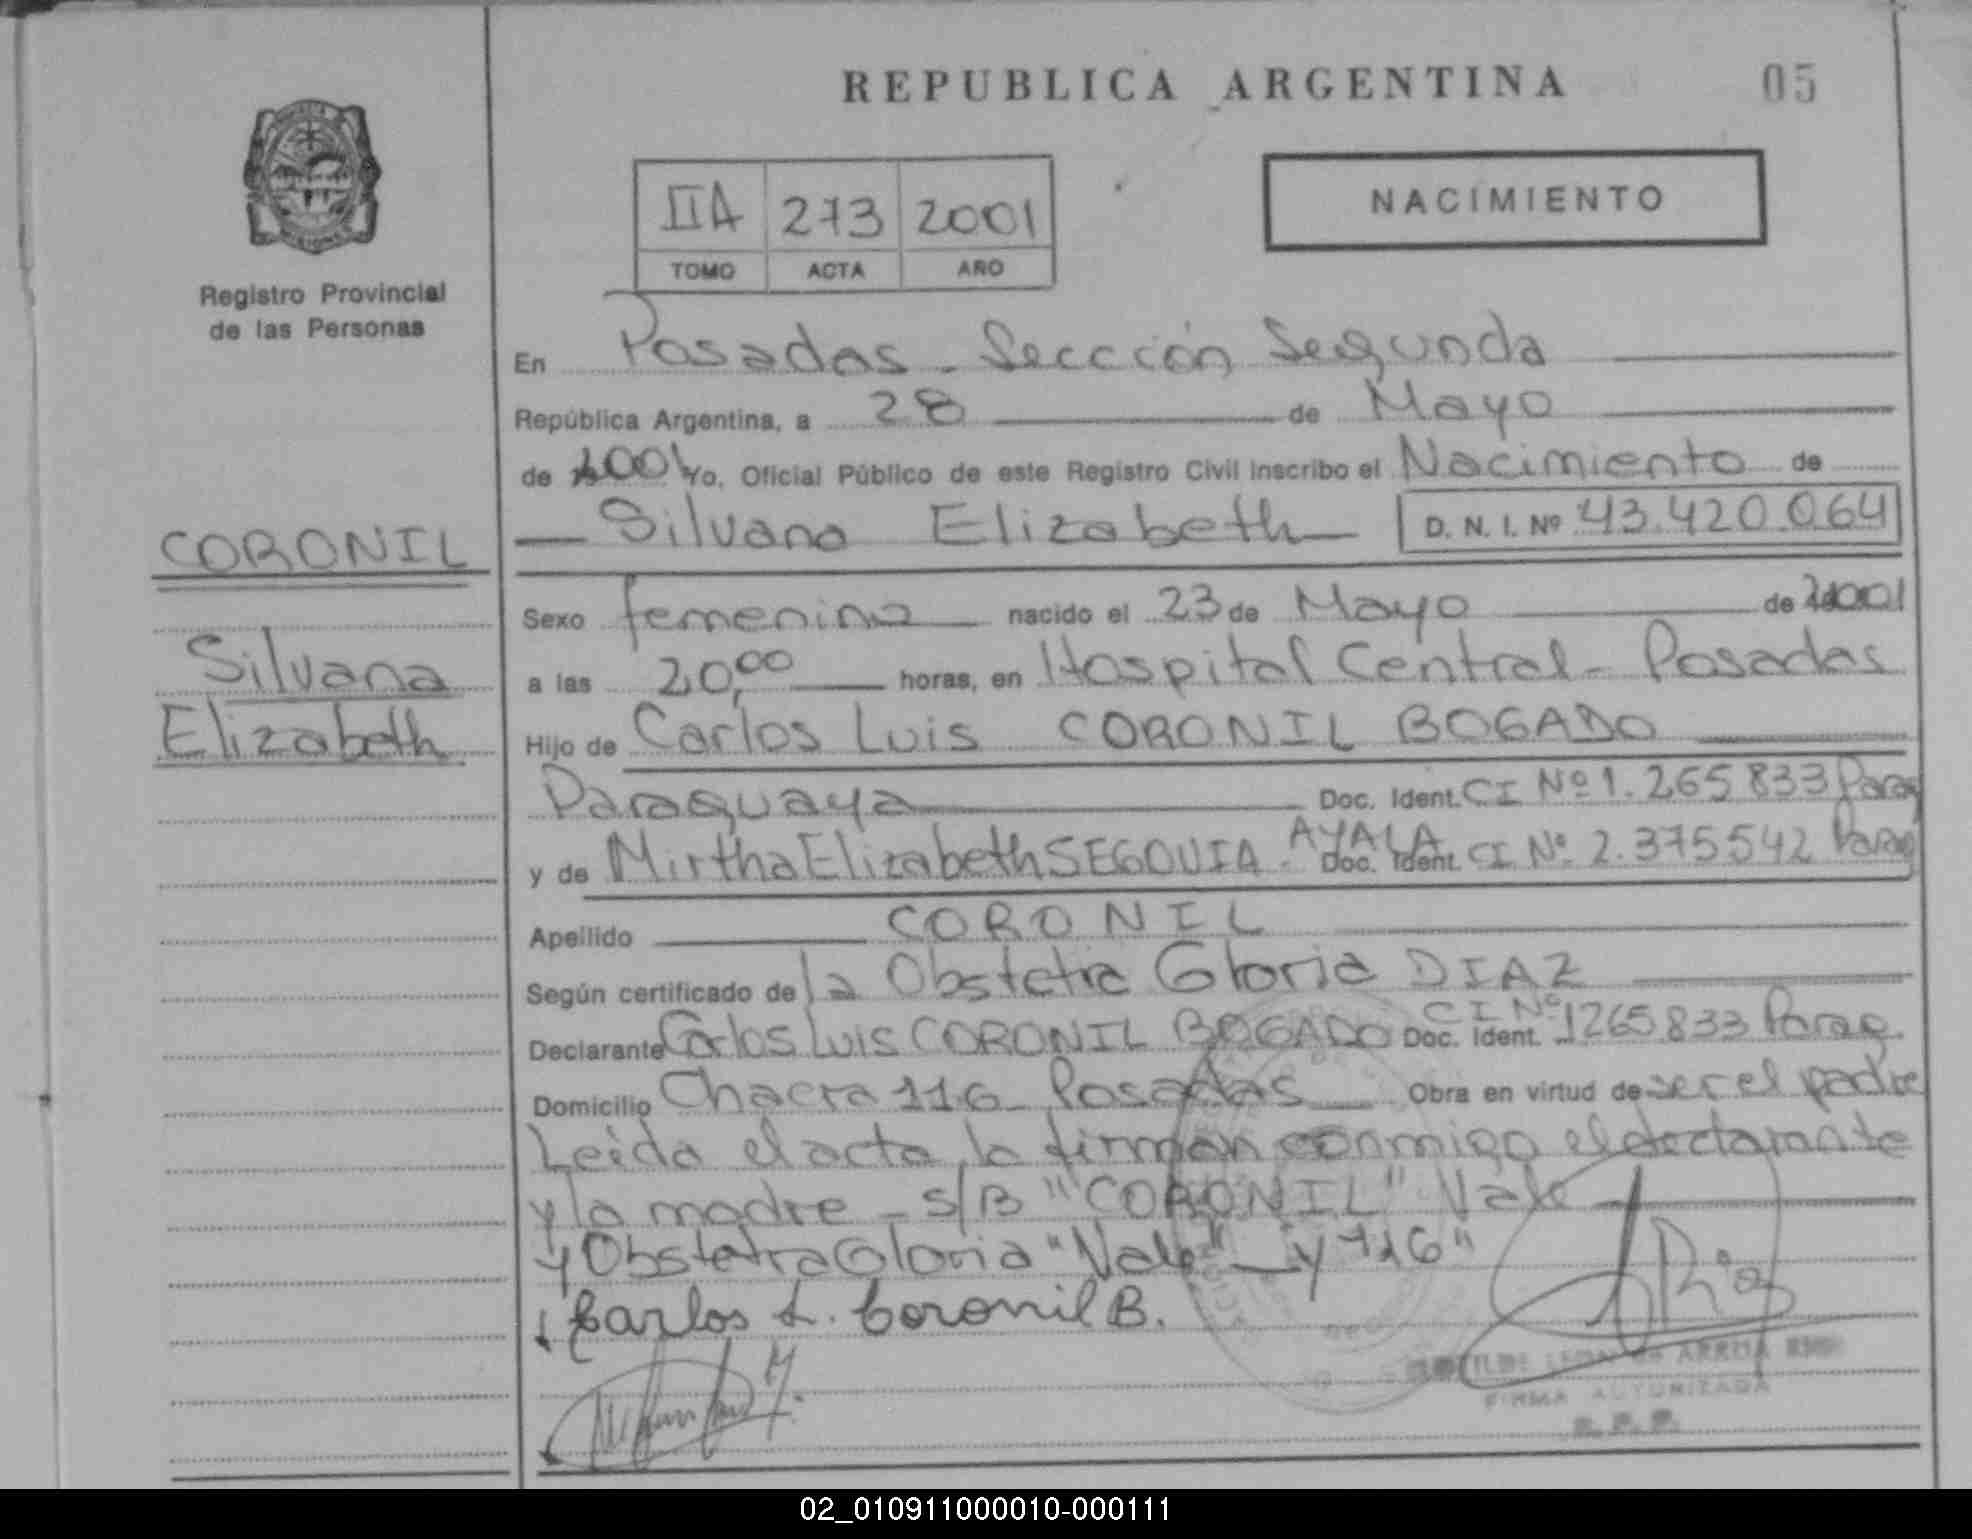 REPUBLICA ARGENTINA
05
IIA 273 2001
TOMO ACTA AÑO
NACIMIENTO
Registro Provincial
de las Personas
En Posadas - Seccción Segunda
República Argentina, a 28 de Mayo
de 2001 Yo, Oficial Público de este Registro Civil inscribo el Nacimiento de
Silvana Elizabeth D. N. I. Nº 43.420.064
CORONIL
Silvana
Elizabeth
Sexo femenino nacido el 23 de Mayo de 2001
a las 20,00 horas, en Hospital Central - Posadas
Hijo de Carlos Luis CORONIL BOGADO
Paraguaya Doc. Ident. CI Nº 1.265833 Parag
y de Mirtha Elizabeth SEGOVIA AYALA Doc. Ident. CI Nº 2.375542 Parag
Apellido CORONIL
Según certificado de la Obstetra Gloria DIAZ
Declarante Carlos Luis CORONIL BOGADO Doc. Ident. CI Nº 1265833 Parag.
Domicilio Chacra 116 Posadas Obra en virtud de ser el padre
Leída el acta, la firman conmigo el declarante
y la madre - S/B "CORONIL" Vale
y Obstetra Gloria "Vale" y "116"
Carlos L. Coronil B.
FIRMA AUTORIZADA
R. P. P.
02_010911000010-000111